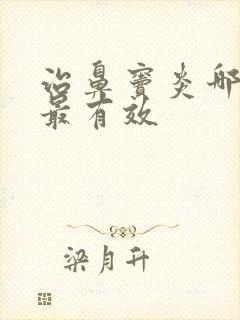 治鼻窦炎哪
最有效
梁月升